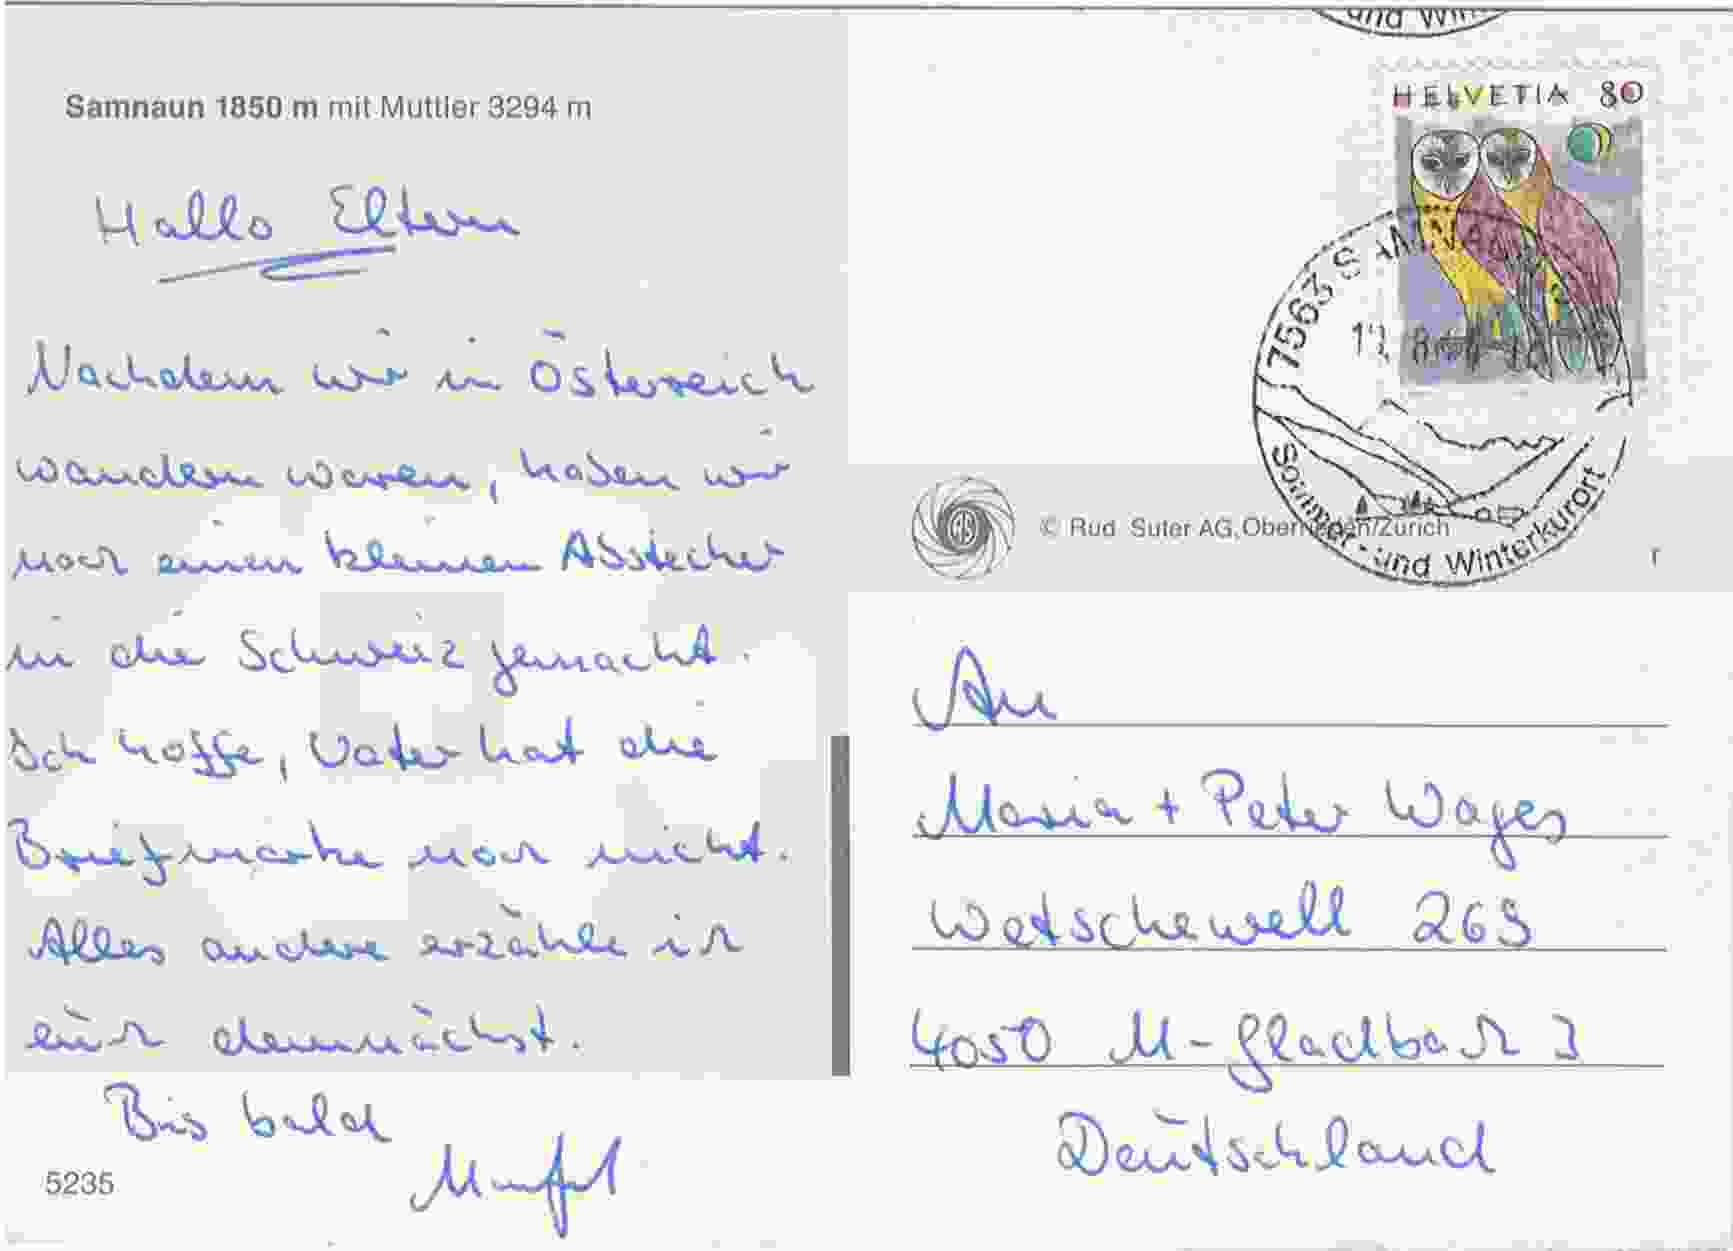 und Win
Samnaun 1850 m mit Muttler 3294 m
HELVETIA 80
7563 SAMNAUN
Sommer- und Winterkurort
Hallo Eltern
Nachdem wir in Österreich
wandern waren, haben wir
noch einen kleinen Abstecher
in die Schweiz gemacht.
Ich hoffe, Vater hat die
Briefmarke noch nicht.
Alles andere erzähle ich
euch demnächst.
Bis bald
5235
© Rud Suter AG, Oberrieden/Zürich
An
Maria + Peter Wages
Wetschewell 269
4050 M-Gladbach 3
Deutschland